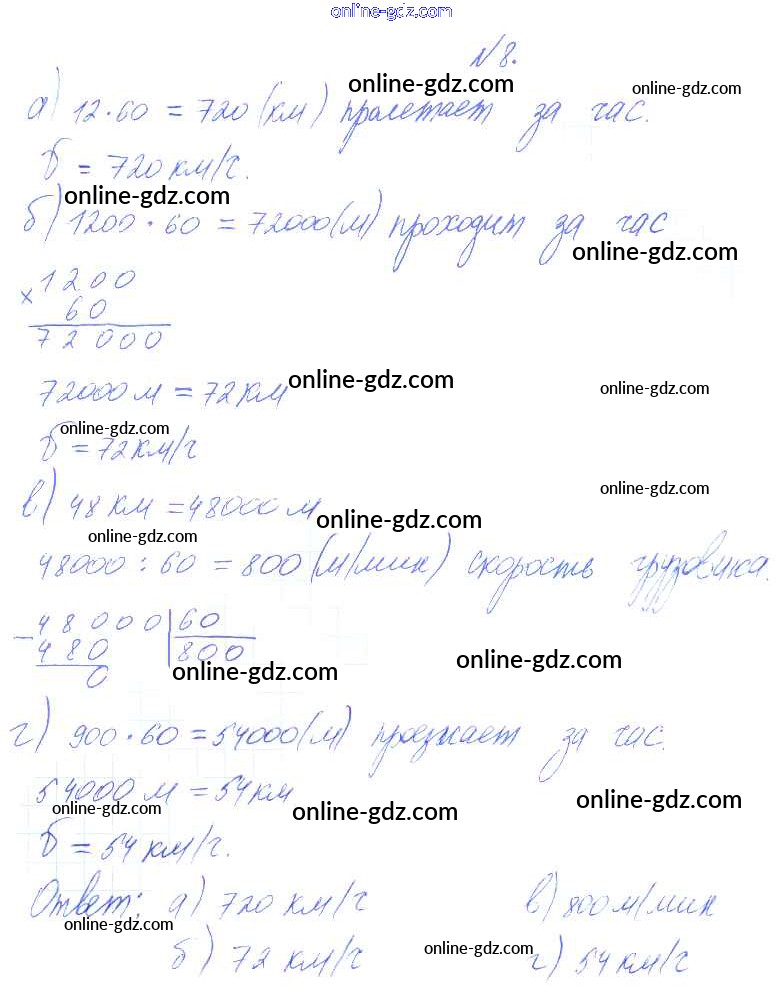 online-gdz.com
№8.
а) 12·60 = 720 (км) пролетает за час.
online-gdz.com online-gdz.com
б = 720 км/ч.
online-gdz.com
б) 1200 · 60 = 72000 (м) проходит за час
online-gdz.com
× 1200
60
72000
72000 м = 72 км
online-gdz.com online-gdz.com
online-gdz.com
б = 72 км/ч
online-gdz.com
в) 48 км = 48000 м
online-gdz.com
online-gdz.com
48000 : 60 = 800 (м/мин) скорость грузовика.
− 48000 | 60
480 | 800
0
online-gdz.com online-gdz.com
г) 900 · 60 = 54000 (м) проезжает за час.
54000 м = 54 км
online-gdz.com online-gdz.com online-gdz.com
б = 54 км/ч.
Ответ: а) 720 км/ч в) 800 м/мин
online-gdz.com
б) 72 км/ч г) 54 км/ч
online-gdz.com